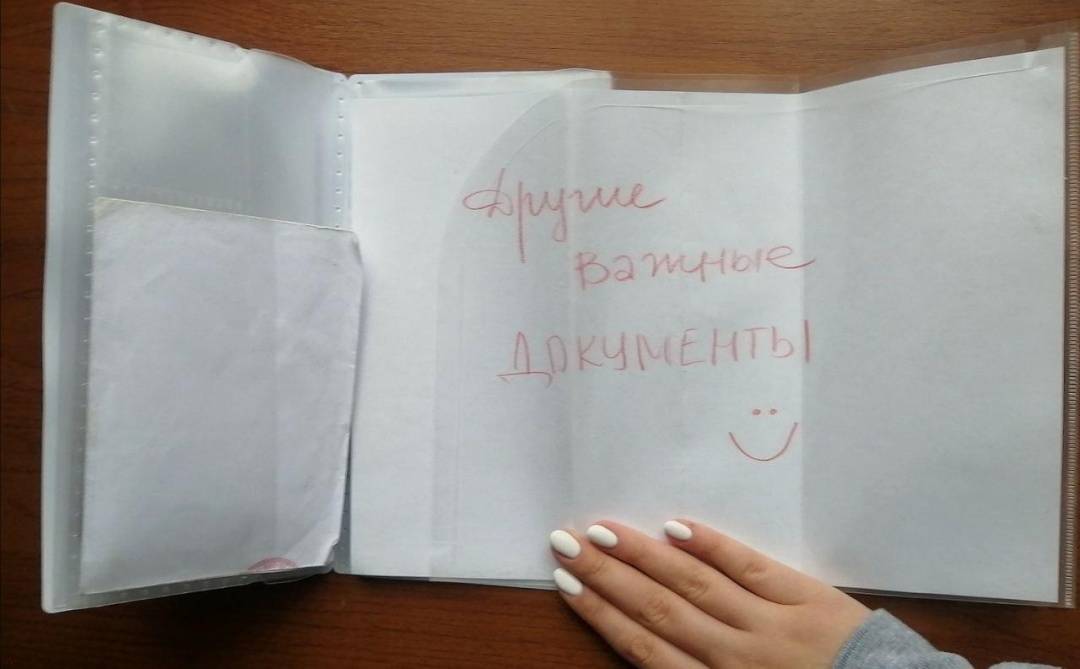 Другие
важные
ДОКУМЕНТЫ